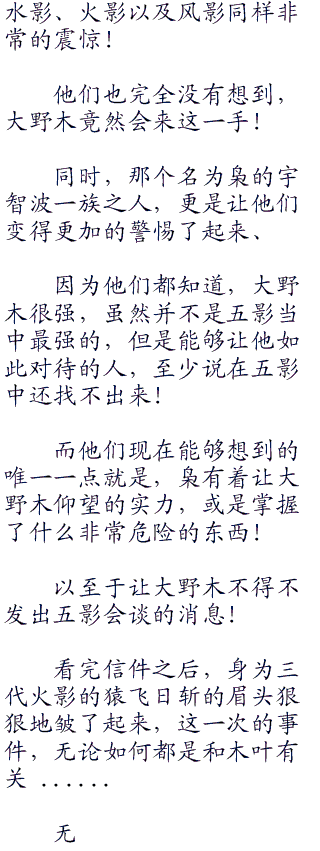 水影、火影以及风影同样非
常的震惊！
他们也完全没有想到，
大野木竟然会来这一手！
同时，那个名为枭的宇
智波一族之人，更是让他们
变得更加的警惕了起来、
因为他们都知道，大野
木很强，虽然并不是五影当
中最强的，但是能够让他如
此对待的人，至少说在五影
中还找不出来！
而他们现在能够想到的
唯一一点就是，枭有着让大
野木仰望的实力，或是掌握
了什么非常危险的东西！
以至于让大野木不得不
发出五影会谈的消息！
看完信件之后，身为三
代火影的猿飞日斩的眉头狠
狠地皱了起来，这一次的事
件，无论如何都是和木叶有
关 ......
无